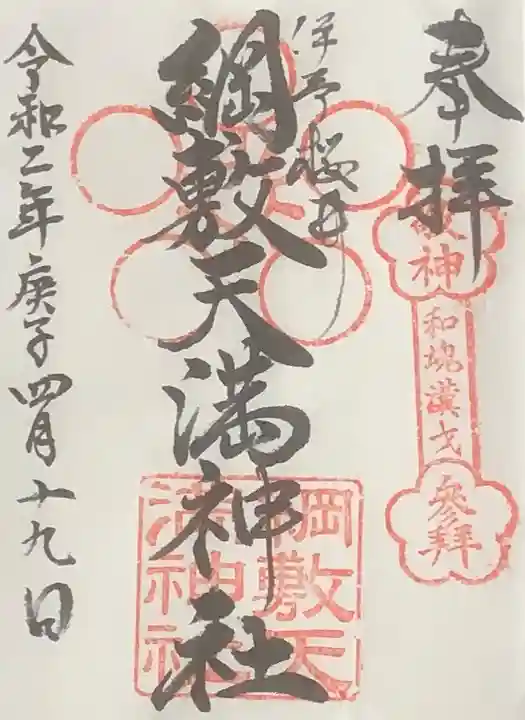 奉拝
敬神
和魂漢才
參拝
伊予桜井
綱敷天満神社
綱敷天
満神社
令和二年庚子四月十九日